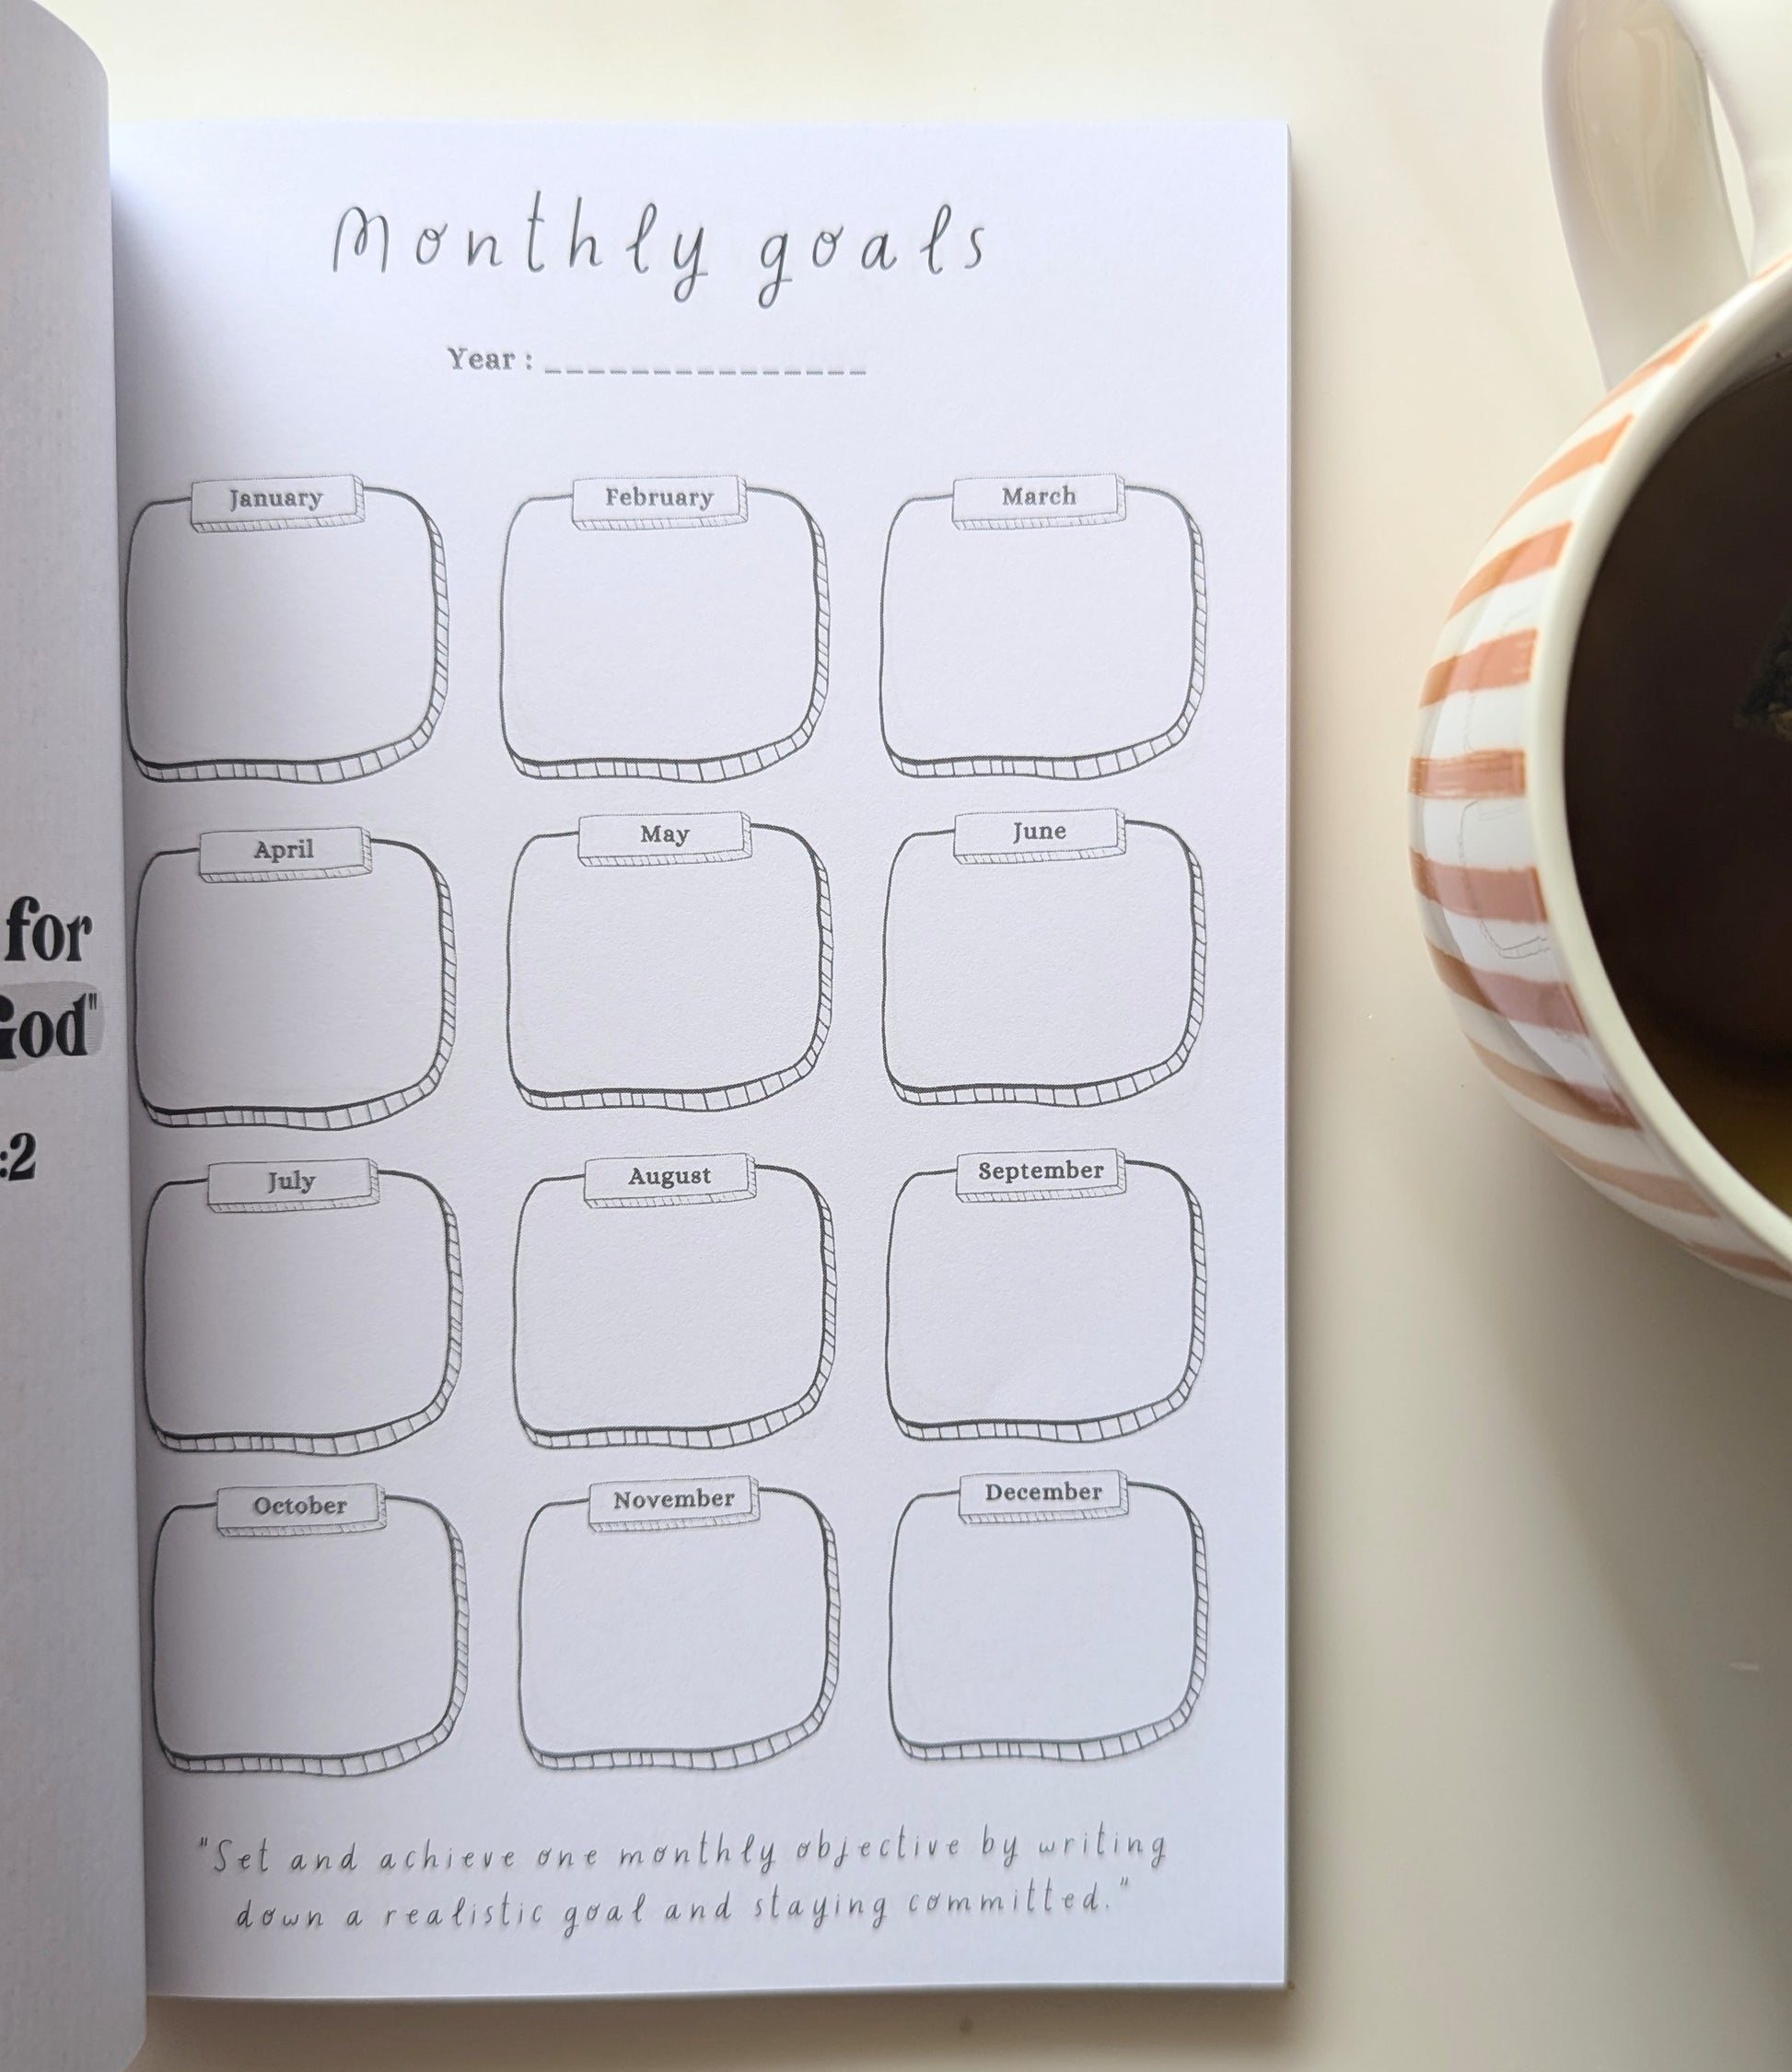 for
God"
:2
Monthly goals
Year : _______________
January
February
March
April
May
June
July
August
September
October
November
December
"Set and achieve one monthly objective by writing
down a realistic goal and staying committed."